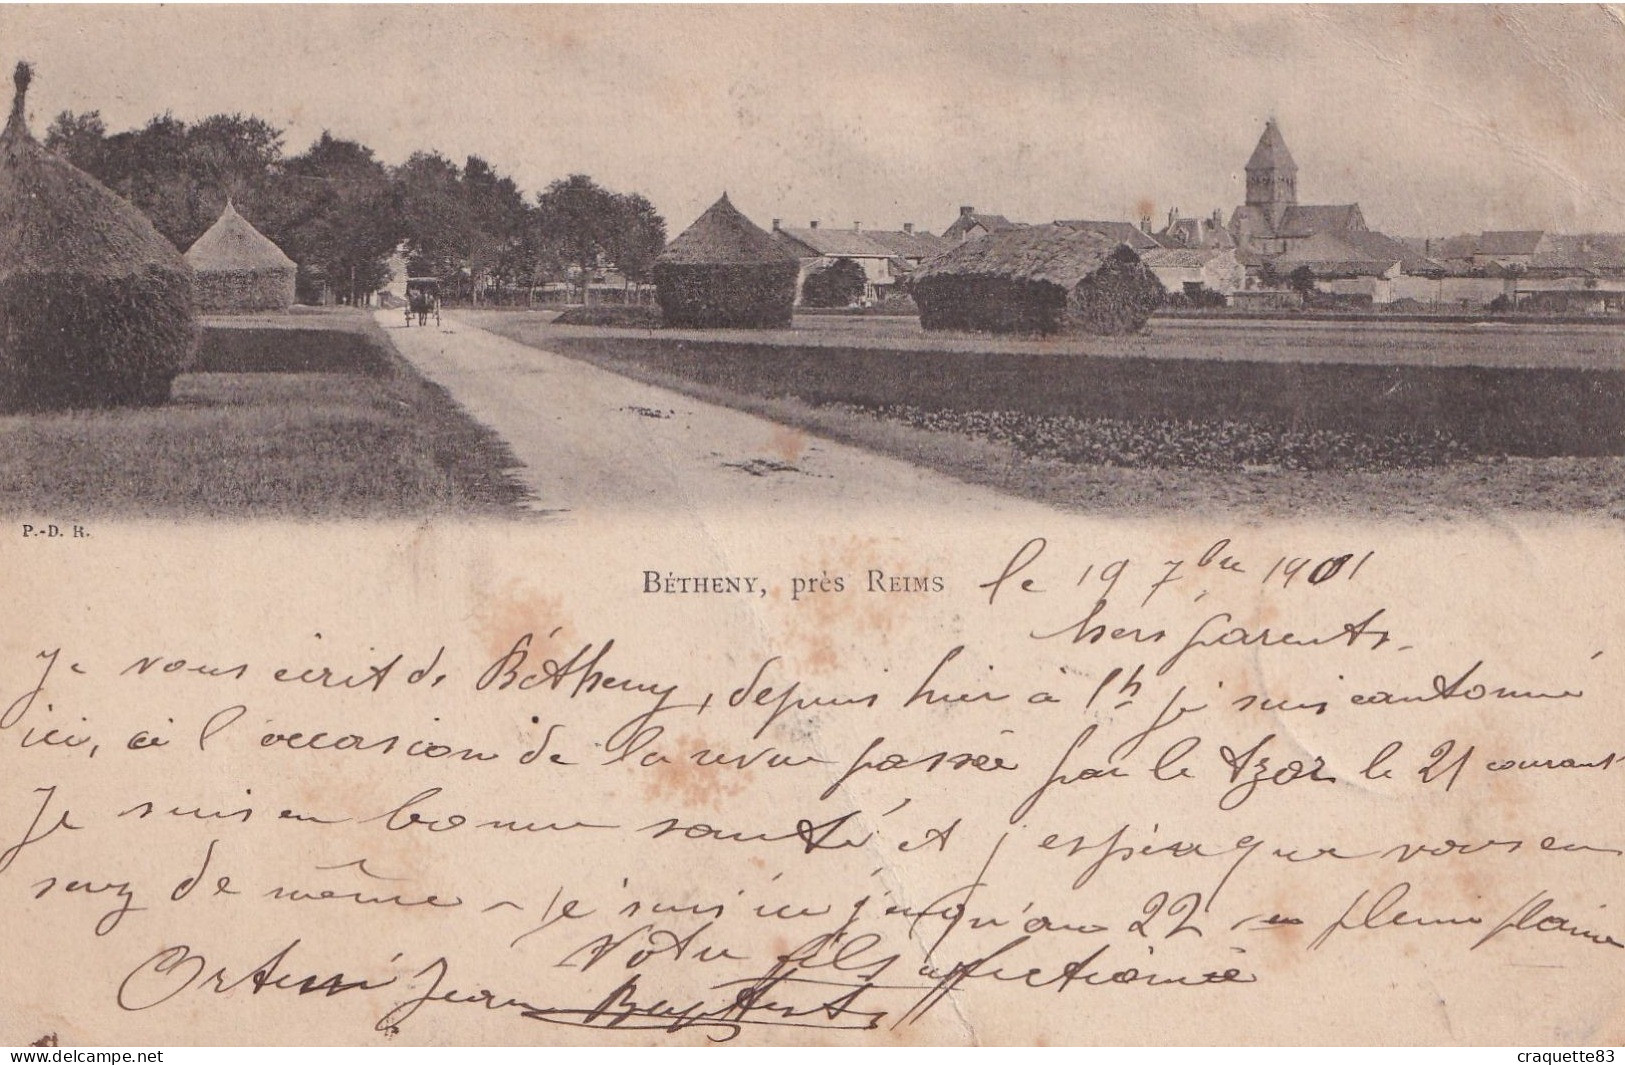 P.-D. R.
BÉTHENY, près REIMS
le 19 7bre 1901
Chers parents.
Je vous écrit de Bétheny, depuis hier à 1h je suis cantonné
ici, à l'occasion de la revue passée par le tzar le 21 courant
Je suis en bonne santé et j'espère que vous en
serez de même - je suis ici jusqu'au 22 en pleine plaine
Votre fils affectionné
Jean Baptiste
www.delcampe.net
craquette83